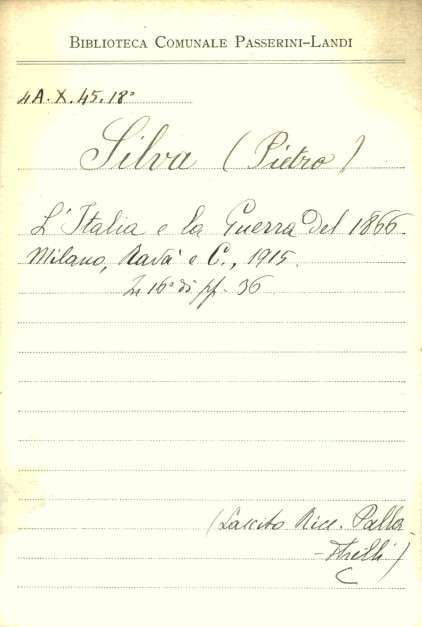 BIBLIOTECA COMUNALE PASSERINI-LANDI
4A.X.45.18°
Silva (Pietro)
L'Italia e la Guerra del 1866.
Milano, Ravà e C., 1915.
In 16° di pp. 36
(Lascito Ricc. Palla-
-strelli)